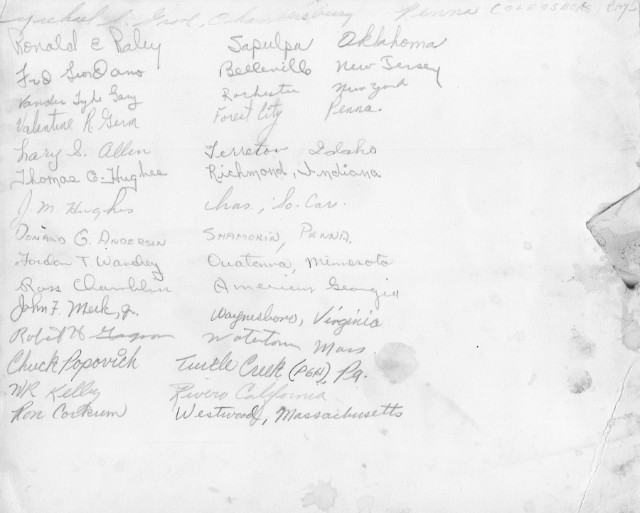 Chambersburg Penna
Ronald E Raley Sapulpa Oklahoma
Fred Giordano Belleville New Jersey
Vander Gary Rochester New York
Valentine R. Germ Forest City Penna.
Lary S. Allen Terreton Idaho
Thomas C. Hughes Richmond, Indiana
J. M. Hughes Chas., So. Car.
Donald G. Anderson Shamokin, Penna.
T Wandrey Owatonna, Minnesota
Ross Chamblin Americus Georgia
John F. Meek, Jr. Waynesboro, Virginia
Robert Watertown Mass
Chuck Popovich Turtle Creek (PGH), Pa.
WR Kelly Rivero California
Ron Corkum Westwood, Massachusetts